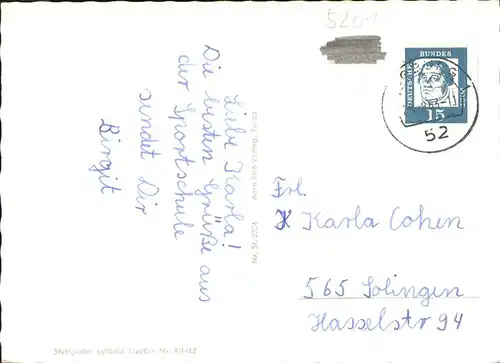 5201
Liebe Karla!
Die besten Grüße aus
der Sportschule
sendet Dir
Birgit
DEUTSCHE
BUNDES
15
52
Frl.
Karla Cohen
565 Solingen
Hasselstr 94
Nr. St. 2224
Aero-Bild-Verlag,
Stuttgarter Luftbild Elsäßer Nr. 9/1412